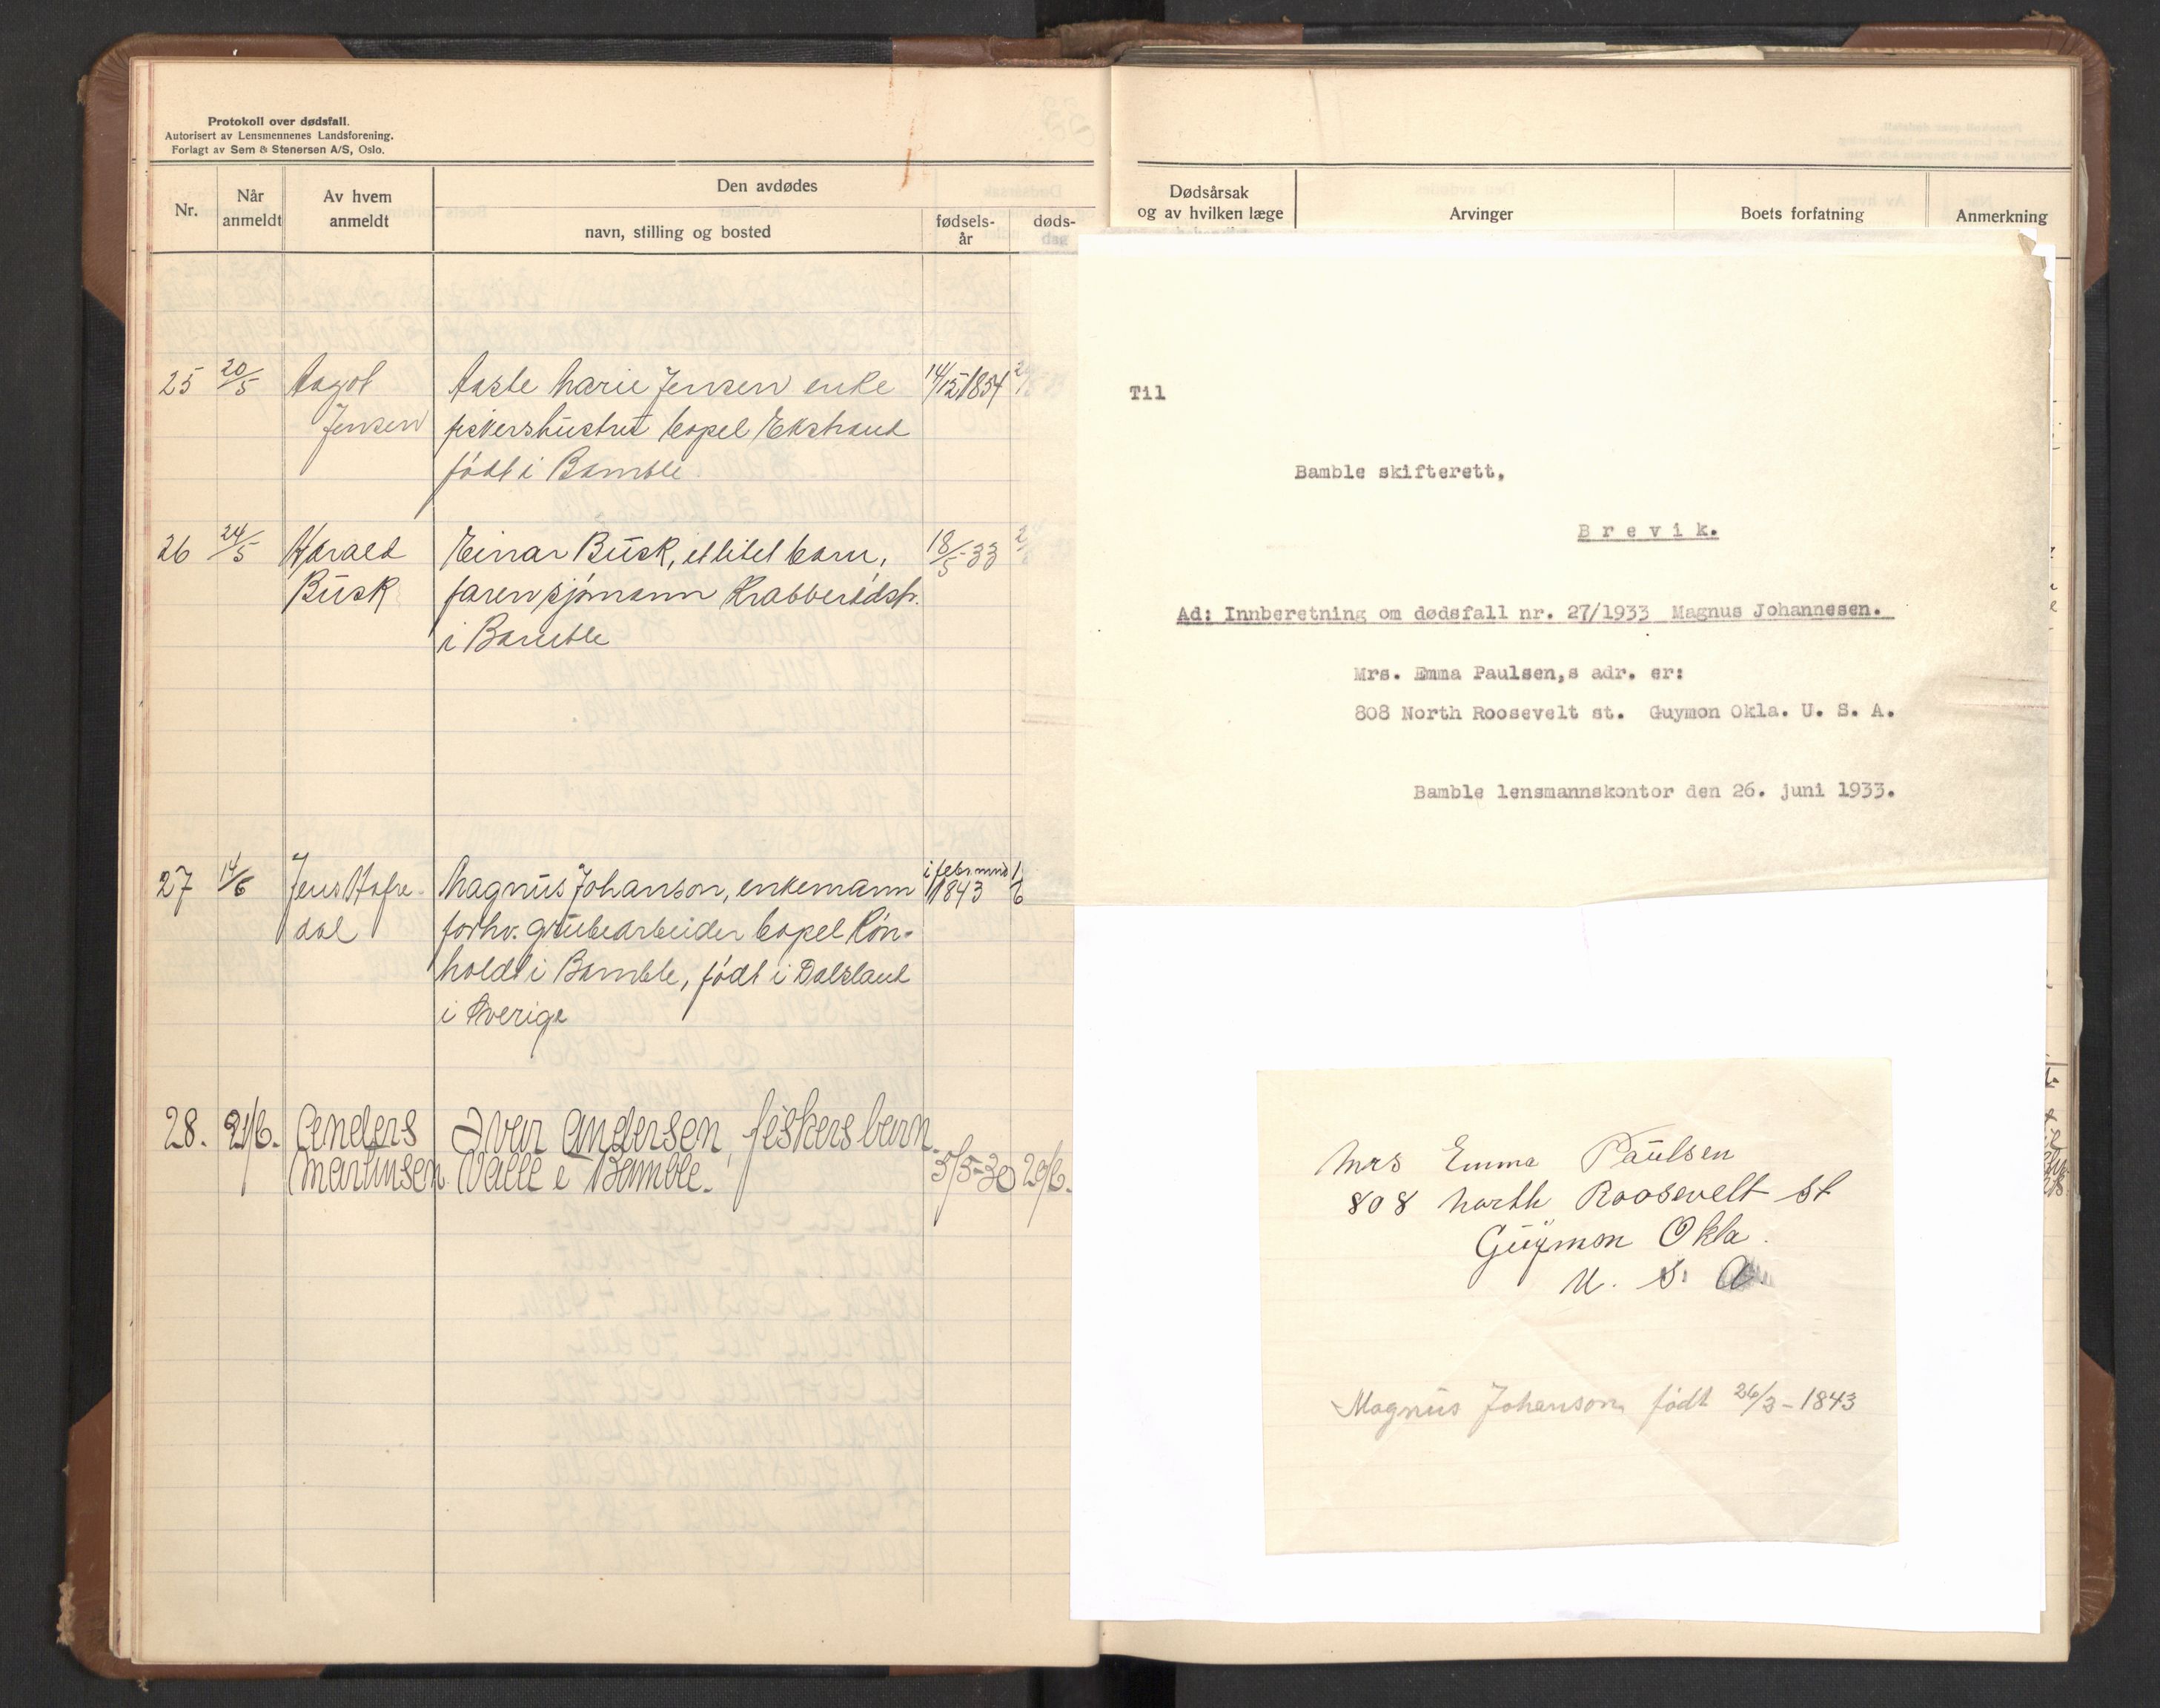 Protokoll over dødsfall.
Autorisert av Lensmennenes Landsforening.
Forlagt av Sem & Stenersen A/S, Oslo.
Nr.
Når
anmeldt
Av hvem
anmeldt
Den avdødes
navn, stilling og bosted
fødsels-
år
døds-
dag
25 20/5 Aagot Aaste Marie Jensen enke 14/12 1854
Jensen fiskershustru bopel Ekstrand
født i Bamble
26 24/5 Harald Einar Busk, et litet barn, 18/5-33
Busk faren sjømann Krabberødstr.
i Bamble
27 14/6 Jens Hafre- Magnus Johanson, enkemann i febr mnd 1843
dal forhv. grubearbeider bopel Røn-
holdt i Bamble, født i Dalsland
i Sverige
28. 21/6. Anders Ivar Andersen, fiskers barn
Martinsen Valle i Bamble. 5/5-30 20/6.
Dødsårsak
og av hvilken læge
Arvinger
Boets forfatning
Anmerkning
Til
Bamble skifterett,
Brevik.
Ad: Innberetning om dødsfall nr. 27/1933 Magnus Johannesen.
Mrs. Emma Paulsen,s adr. er:
808 North Roosevelt st. Guymon Okla. U. S. A.
Bamble lensmannskontor den 26. juni 1933.
Mrs Emma Paulsen
808 North Roosevelt St
Guymon Okla.
U. S. A.
Magnus Johanson født 26/3-1843